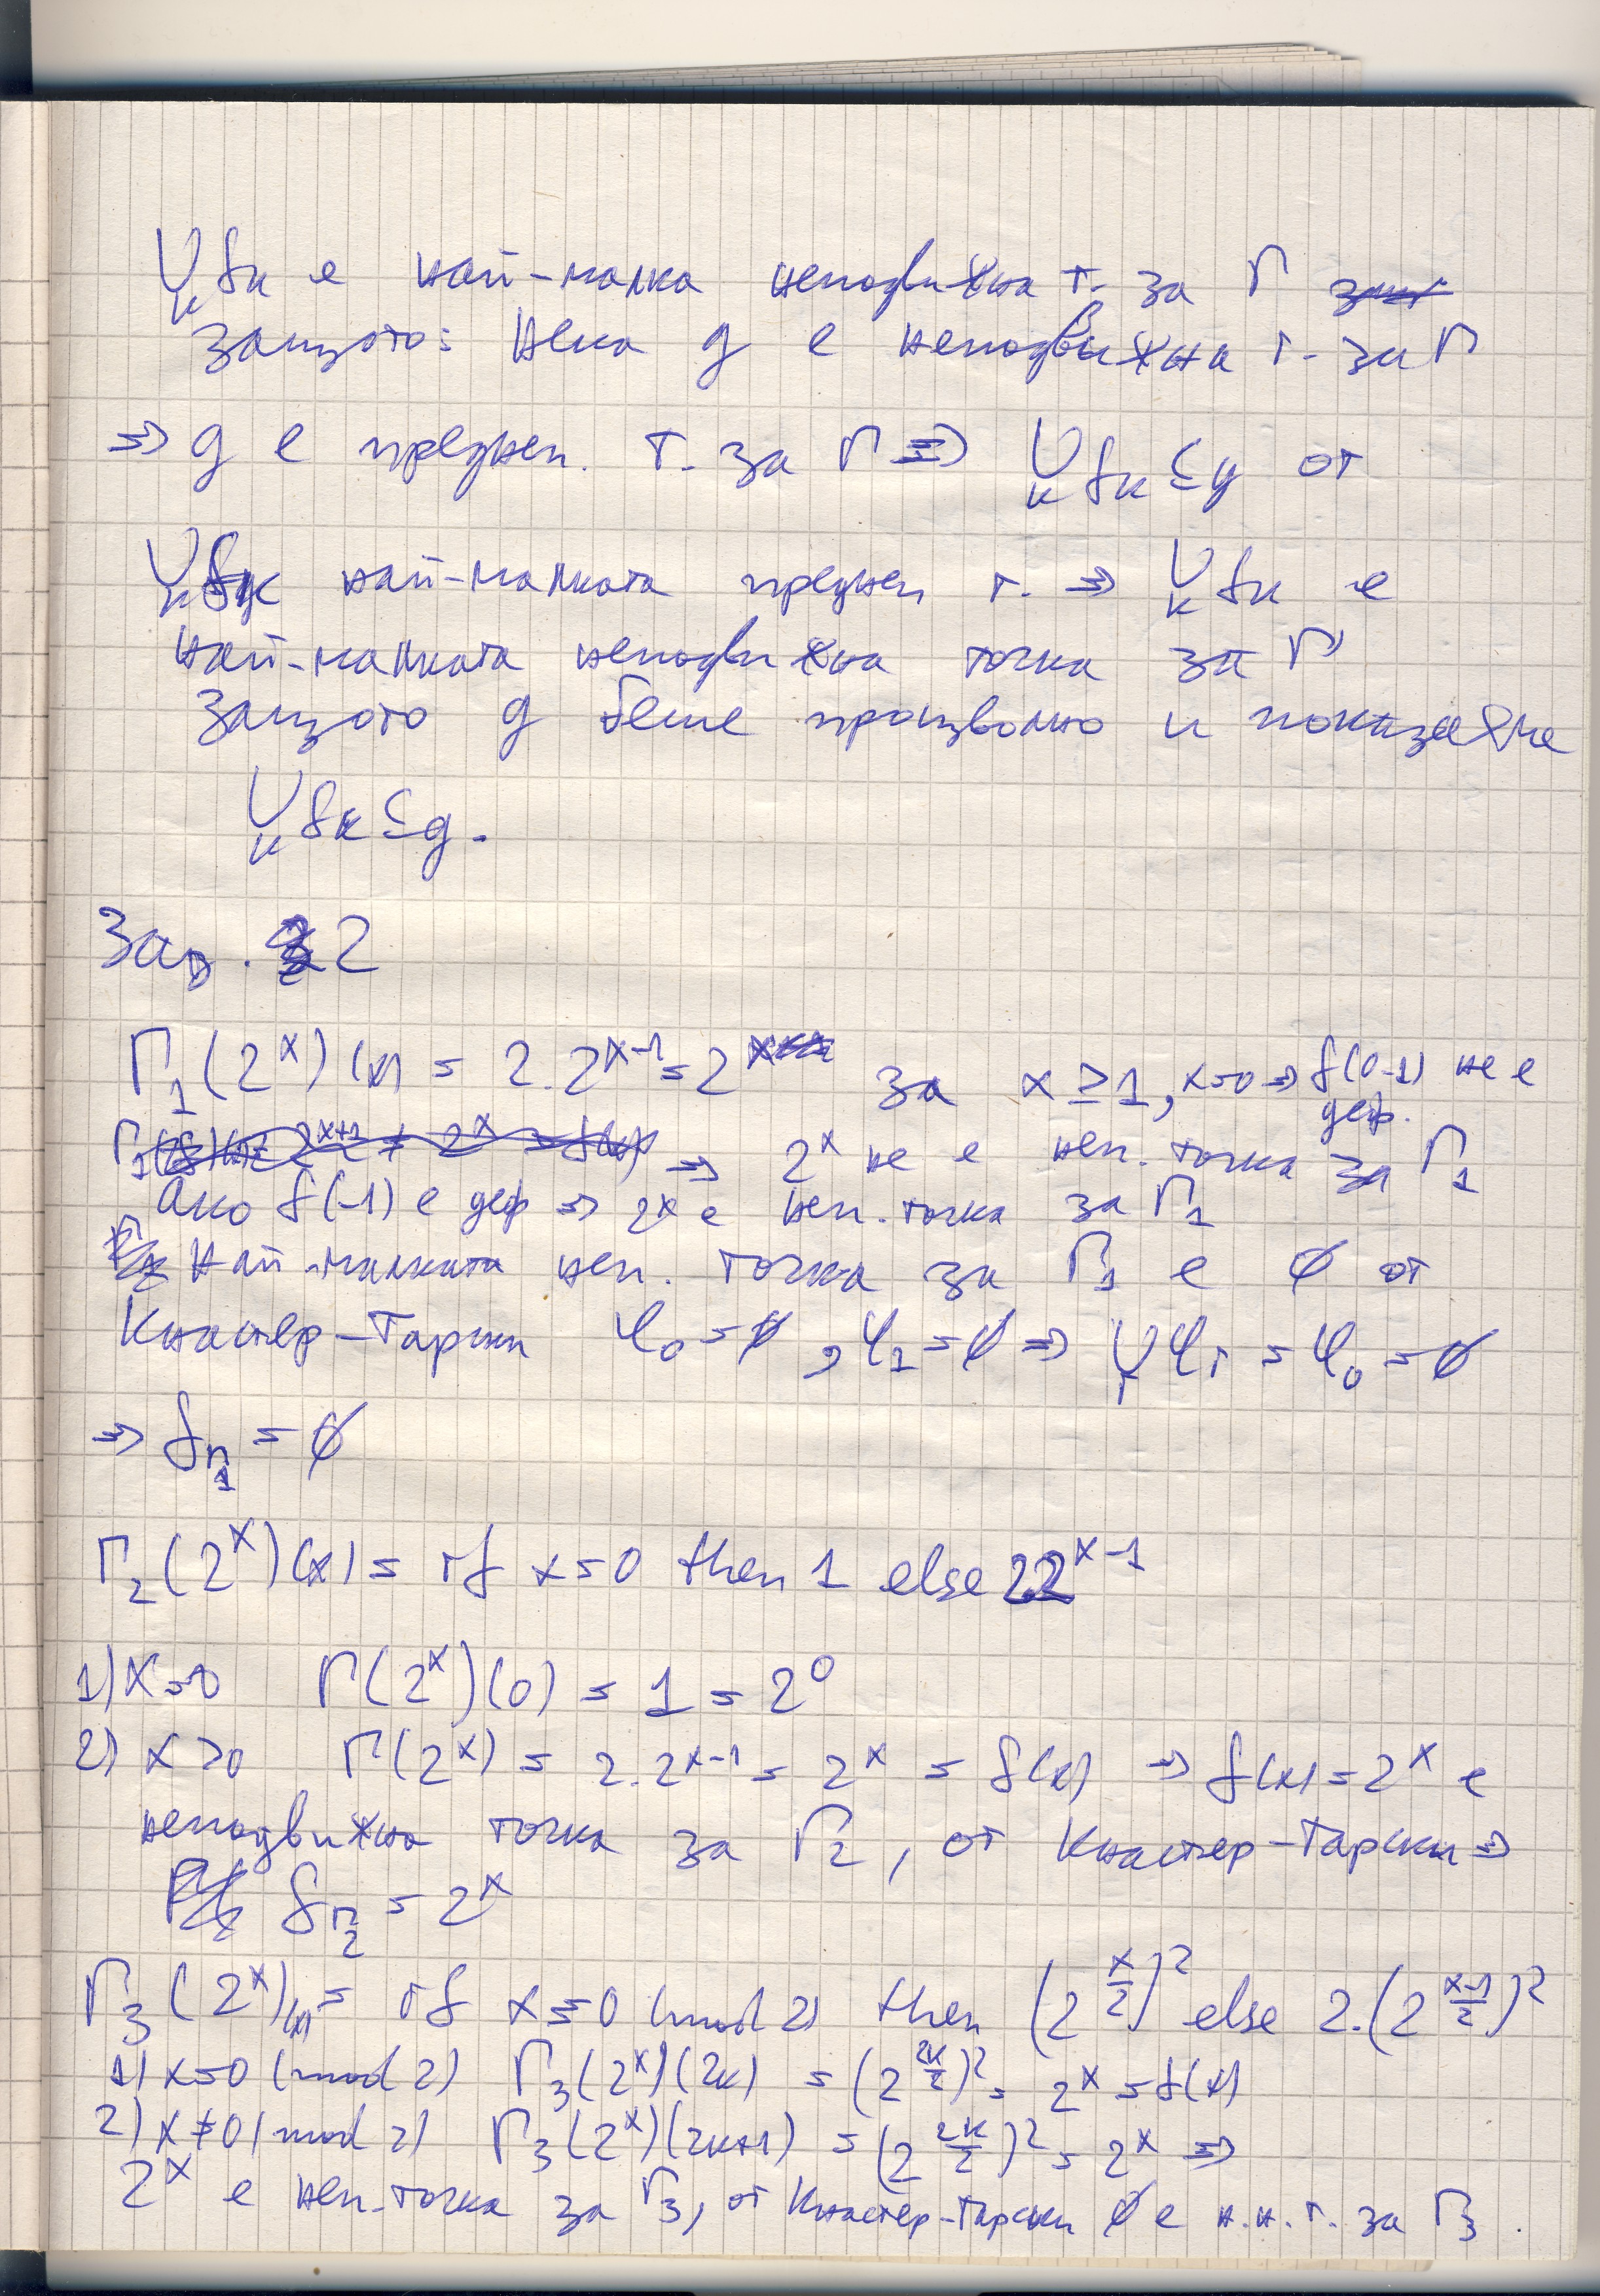 ⋃ₖ fₖ е най-малка неподвижна т. за Γ
защото: Нека g е неподвижна т. за Γ
⇒ g е преднеп. т. за Γ ⇒ ⋃ₖ fₖ ⊆ g от
⋃ₖ fₖ най-малката преднеп т. ⇒ ⋃ₖ fₖ е
най-малката неподвижна точка за Γ
защото g беше произволно и показахме
⋃ₖ fₖ ⊆ g.
Зад. 2
Γ₁(2ˣ)(x) = 2.2ˣ⁻¹ = 2ˣ за x ≥ 1, x=0 ⇒ f(0-1) не е деф.
⇒ 2ˣ не е неп. точка за Γ₁
Ако f(-1) е деф ⇒ 2ˣ е неп. точка за Γ₁
Най-малката неп. точка за Γ₁ е ∅ от
Кнастер-Тарски φ₀ = ∅, φ₁ = ∅ ⇒ ⋃ᵣ φᵣ = φ₀ = ∅
⇒ f_Γ₁ = ∅
Γ₂(2ˣ)(x) = if x=0 then 1 else 2.2ˣ⁻¹
1) x=0 Γ(2ˣ)(0) = 1 = 2⁰
2) x>0 Γ(2ˣ) = 2.2ˣ⁻¹ = 2ˣ = f(x) ⇒ f(x) = 2ˣ е
неподвижна точка за Γ₂, от Кнастер-Тарски ⇒
f_Γ₂ = 2ˣ
Γ₃(2ˣ)(x) = if x≡0 (mod 2) then (2^(x/2))² else 2.(2^((x-1)/2))²
1) x≡0 (mod 2) Γ₃(2ˣ)(2k) = (2^(2k/2))² = 2ˣ = f(x)
2) x≢0 (mod 2) Γ₃(2ˣ)(2k+1) = (2^(2k/2))² = 2ˣ ⇒
2ˣ е неп. точка за Γ₃, от Кнастер-Тарски ∅ е н.н.т. за Γ₃.